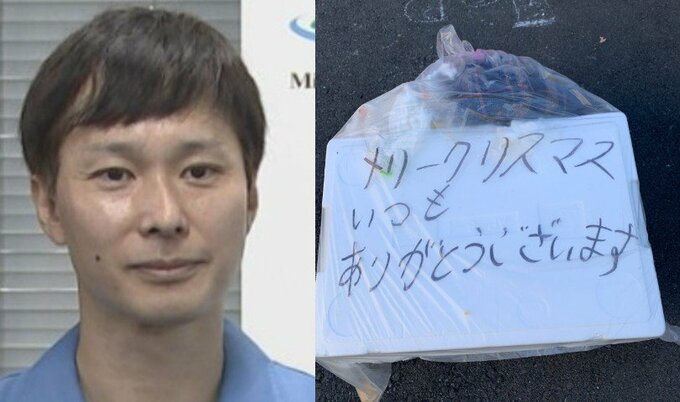 Mi
メリークリスマス
いつも
ありがとうございます